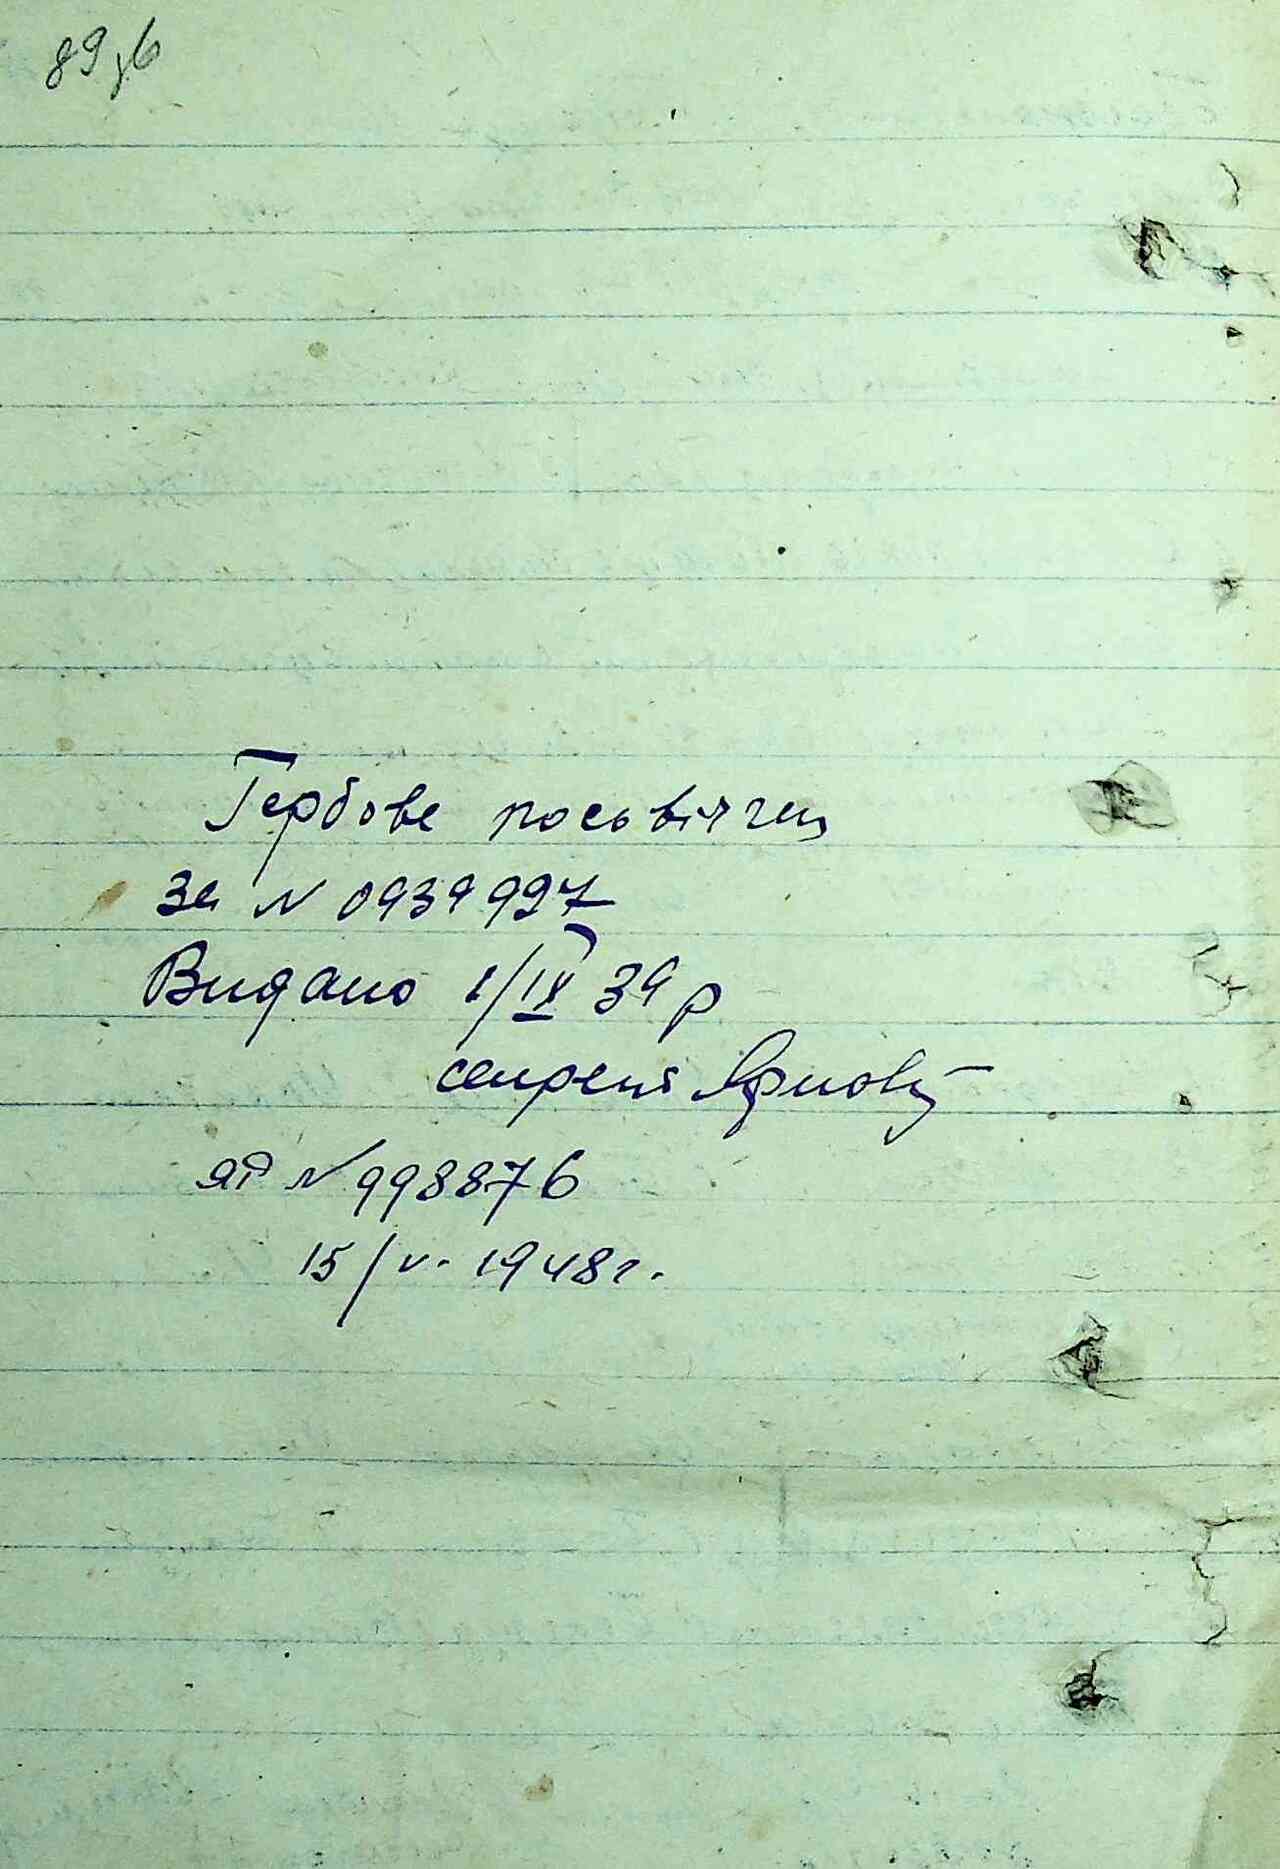 89 зв
Гербове посьвідчен
за N 0939927
Видано 1/IX 39 р
секрет
ЯР N 998876
15/V. 1948 г.